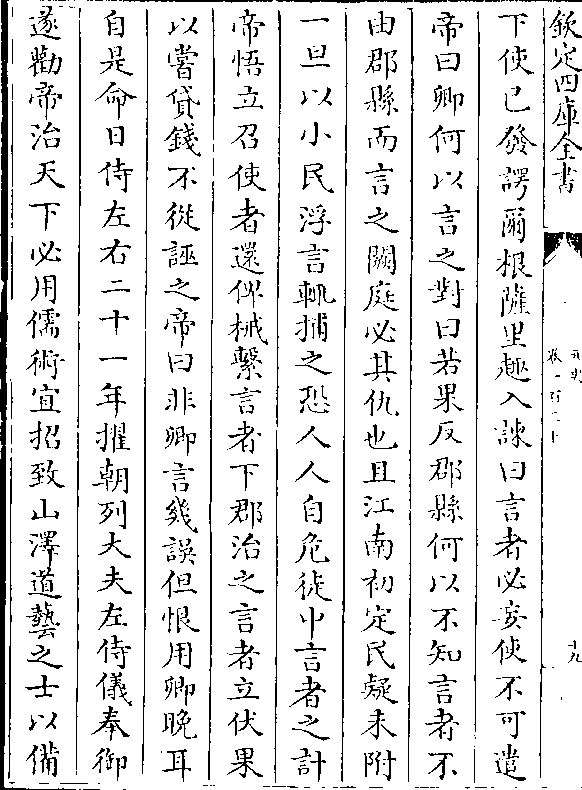 欽定四庫全書
下使已發諤爾根薩里趣入諫曰言者必妄使不可遣
帝曰卿何以言之對曰若果反郡縣何以不知言者不
由郡縣而言之闕庭必其仇也且江南初定民疑未附
一旦以小民浮言輒捕之恐人人自危徒中言者之計
帝悟立召使者還俾械繫言者下郡治之言者立伏果
以嘗貸錢不從誣之帝曰非卿言幾誤但恨用卿晚耳
自是命日侍左右二十一年擢朝列大夫左侍儀奉御
遂勸帝治天下必用儒術宜招致山澤道藝之士以備
十九